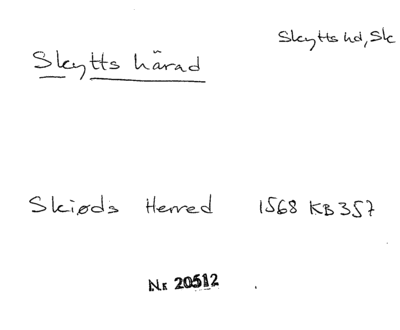 Skytts hd, Sk
Skytts härad
Skiøds Herred 1568 KB 357
Nr 20512